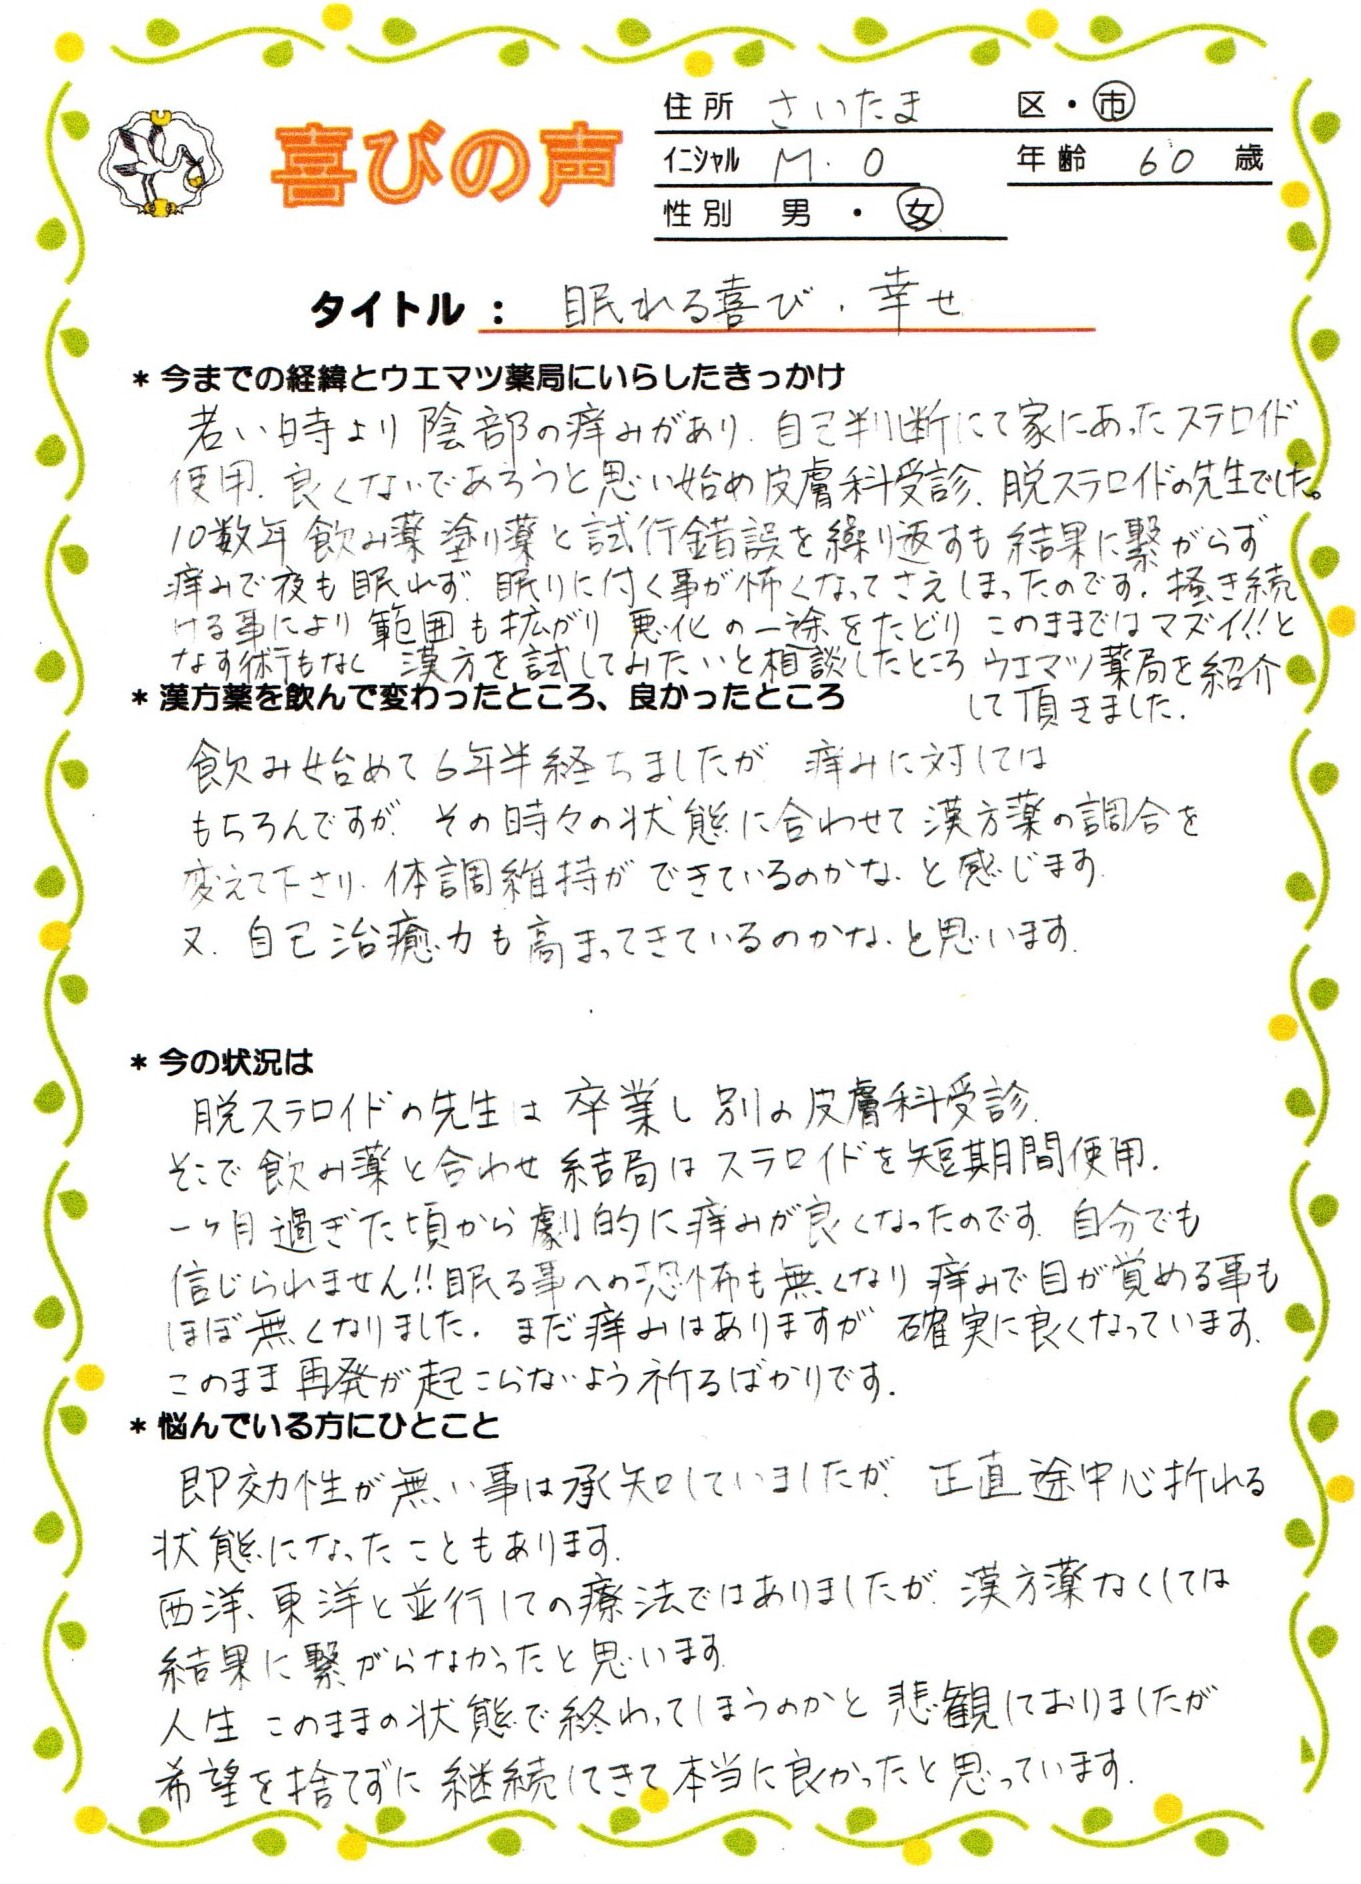 喜びの声
住所 さいたま 区・市
イニシャル M.O 年齢 60 歳
性別 男・女
タイトル： 眠れる喜び、幸せ
* 今までの経緯とウエマツ薬局にいらしたきっかけ
若い時より陰部の痒みがあり、自己判断にて家にあったステロイド
使用、良くないであろうと思い始め皮膚科受診、脱ステロイドの先生でした。
10数年飲み薬塗り薬と試行錯誤を繰り返すも結果に繋がらず
痒みで夜も眠れず、眠りに付く事が怖くなってさえしまったのです。掻き続
ける事により範囲も拡がり悪化の一途をたどりこのままではマズイ!!と
なす術もなく漢方を試してみたいと相談したところウエマツ薬局を紹介
して頂きました。
* 漢方薬を飲んで変わったところ、良かったところ
飲み始めて6年半経ちましたが、痒みに対しては
もちろんですが、その時々の状態に合わせて漢方薬の調合を
変えて下さり、体調維持ができているのかな、と感じます。
又、自己治癒力も高まってきているのかな、と思います。
* 今の状況は
脱ステロイドの先生は卒業し別の皮膚科受診、
そこで飲み薬と合わせ結局はステロイドを短期間使用。
一ヶ月過ぎた頃から劇的に痒みが良くなったのです、自分でも
信じられません!!眠る事への恐怖も無くなり痒みで目が覚める事も
ほぼ無くなりました。まだ痒みはありますが確実に良くなっています。
このまま再発が起こらないよう祈るばかりです。
* 悩んでいる方にひとこと
即効性が無い事は承知していましたが、正直途中心折れる
状態になったこともあります。
西洋、東洋と並行しての療法ではありましたが、漢方薬なくしては
結果に繋がらなかったと思います。
人生このままの状態で終わってしまうのかと悲観しておりましたが
希望を捨てずに継続してきて本当に良かったと思っています。